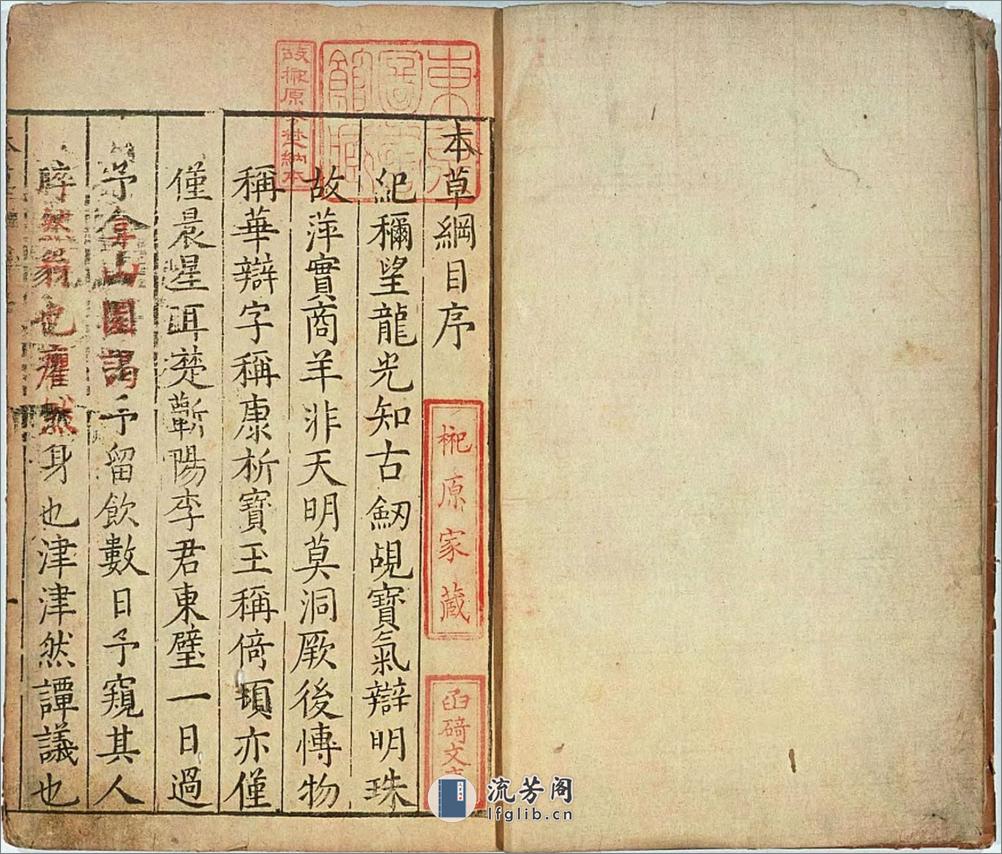 東京圖書館藏
故榊原芳埜納本
本草綱目序
榊原家蔵
函碕文庫
紀穪望龍光知古劒覘寶氣辯明珠
故萍實商羊非天明莫洞厥後博物
稱華辯字稱康析寶玉稱倚頓亦僅
僅晨星耳楚蘄陽李君東璧一日過
予弇山園謁予留飲數日予窺其人
睟然也癯然身也津津然譚議也
流芳阁
lfglib.cn